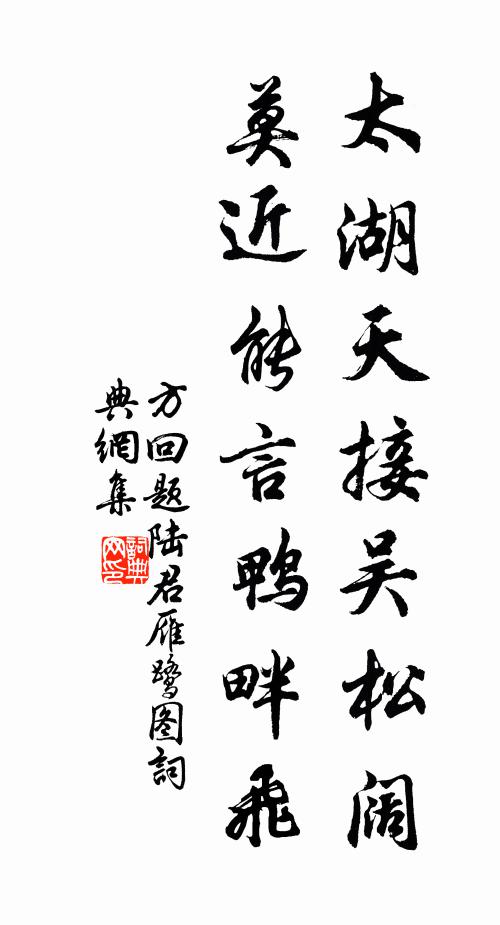 太湖天接吴松阔
莫近能言鸭畔飛
方回题陆君雁鹭图詞
典網集
詞典网印